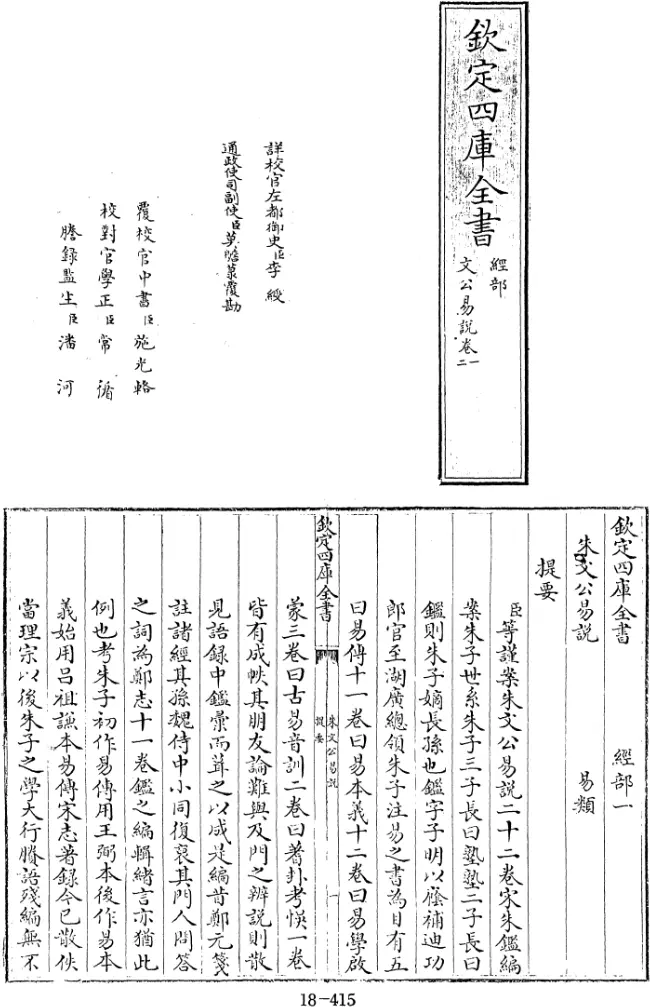 欽定四庫全書
經部
文公易說卷一
二
詳校官左都御史臣李綬
通政使司副使臣莫瞻菉覆勘
覆校官中書臣施光輅
校對官學正臣常循
謄錄監生臣潘河
欽定四庫全書 經部一
朱文公易說 易類
提要
臣等謹案朱文公易說二十二卷宋朱鑑編
案朱子世系朱子三子長曰塾塾二子長曰
鑑則朱子嫡長孫也鑑字子明以廕補迪功
郎官至湖廣總領朱子注易之書為目有五
曰易傳十一卷曰易本義十二卷曰易學啟
欽定四庫全書
朱文公易說
提要
一
蒙三卷曰古易音訓二卷曰蓍卦考悞一卷
皆有成帙其朋友論難與及門之辨說則散
見語録中鑑彙而葺之以成是編昔鄭元箋
註諸經其孫魏侍中小同復裒其門人問答
之詞為鄭志十一卷鑑之編輯緒言亦猶此
例也考朱子初作易傳用王弼本後作易本
義始用呂祖謙本易傳宋志著録今已散佚
當理宗以後朱子之學大行賸語殘編無不
18-415